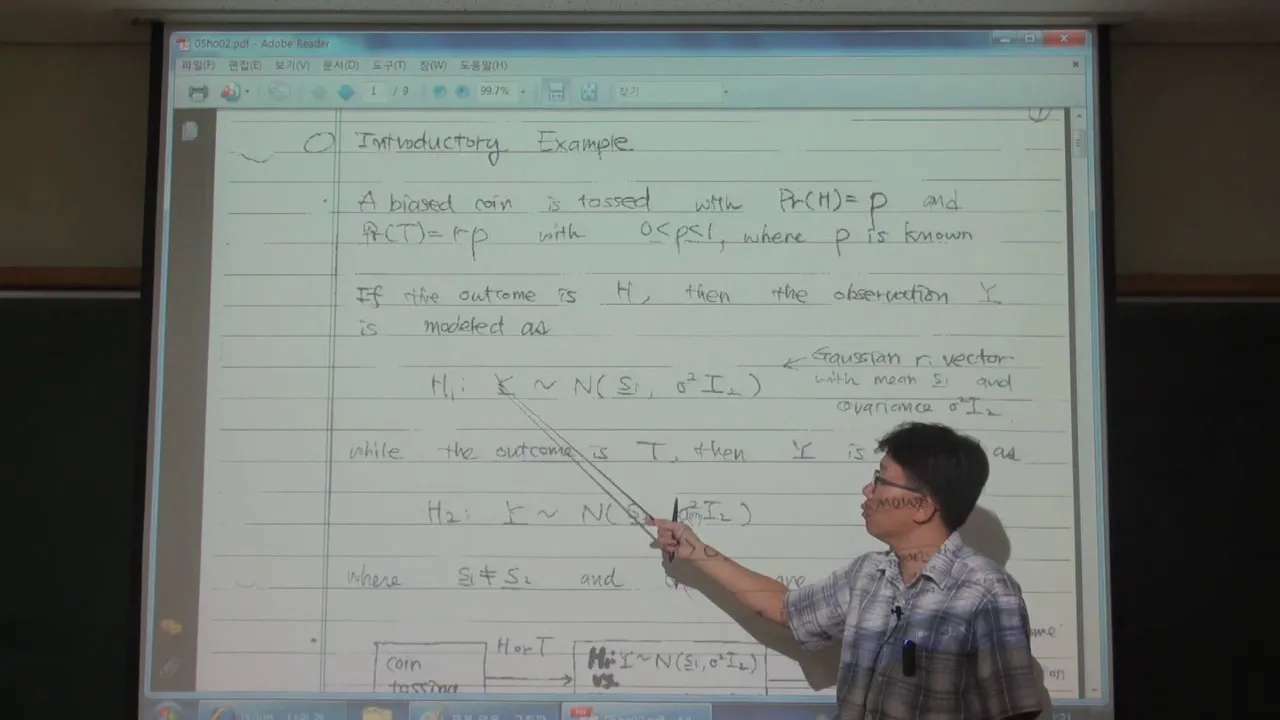 05ho02.pdf - Adobe Reader
파일(F) 편집(E) 보기(V) 문서(D) 도구(T) 창(W) 도움말(H)
1 / 9 99.7% 찾기
1
Introductory Example
A biased coin is tossed with Pr(H)=p and
Pr(T)=1-p with 0<p<1, where p is known
If the outcome is H, then the observation Y
is modeled as
H₁: Y ~ N(S₁, σ²I₂)
← Gaussian r. vector
with mean S₁ and
covariance σ²I₂
while the outcome is T, then Y is as
H₂: Y ~ N(S₂, σ²I₂)
where S₁≠S₂ and are
coin
tossing
H or T
H₁: Y~N(S₁,σ²I₂)
vs